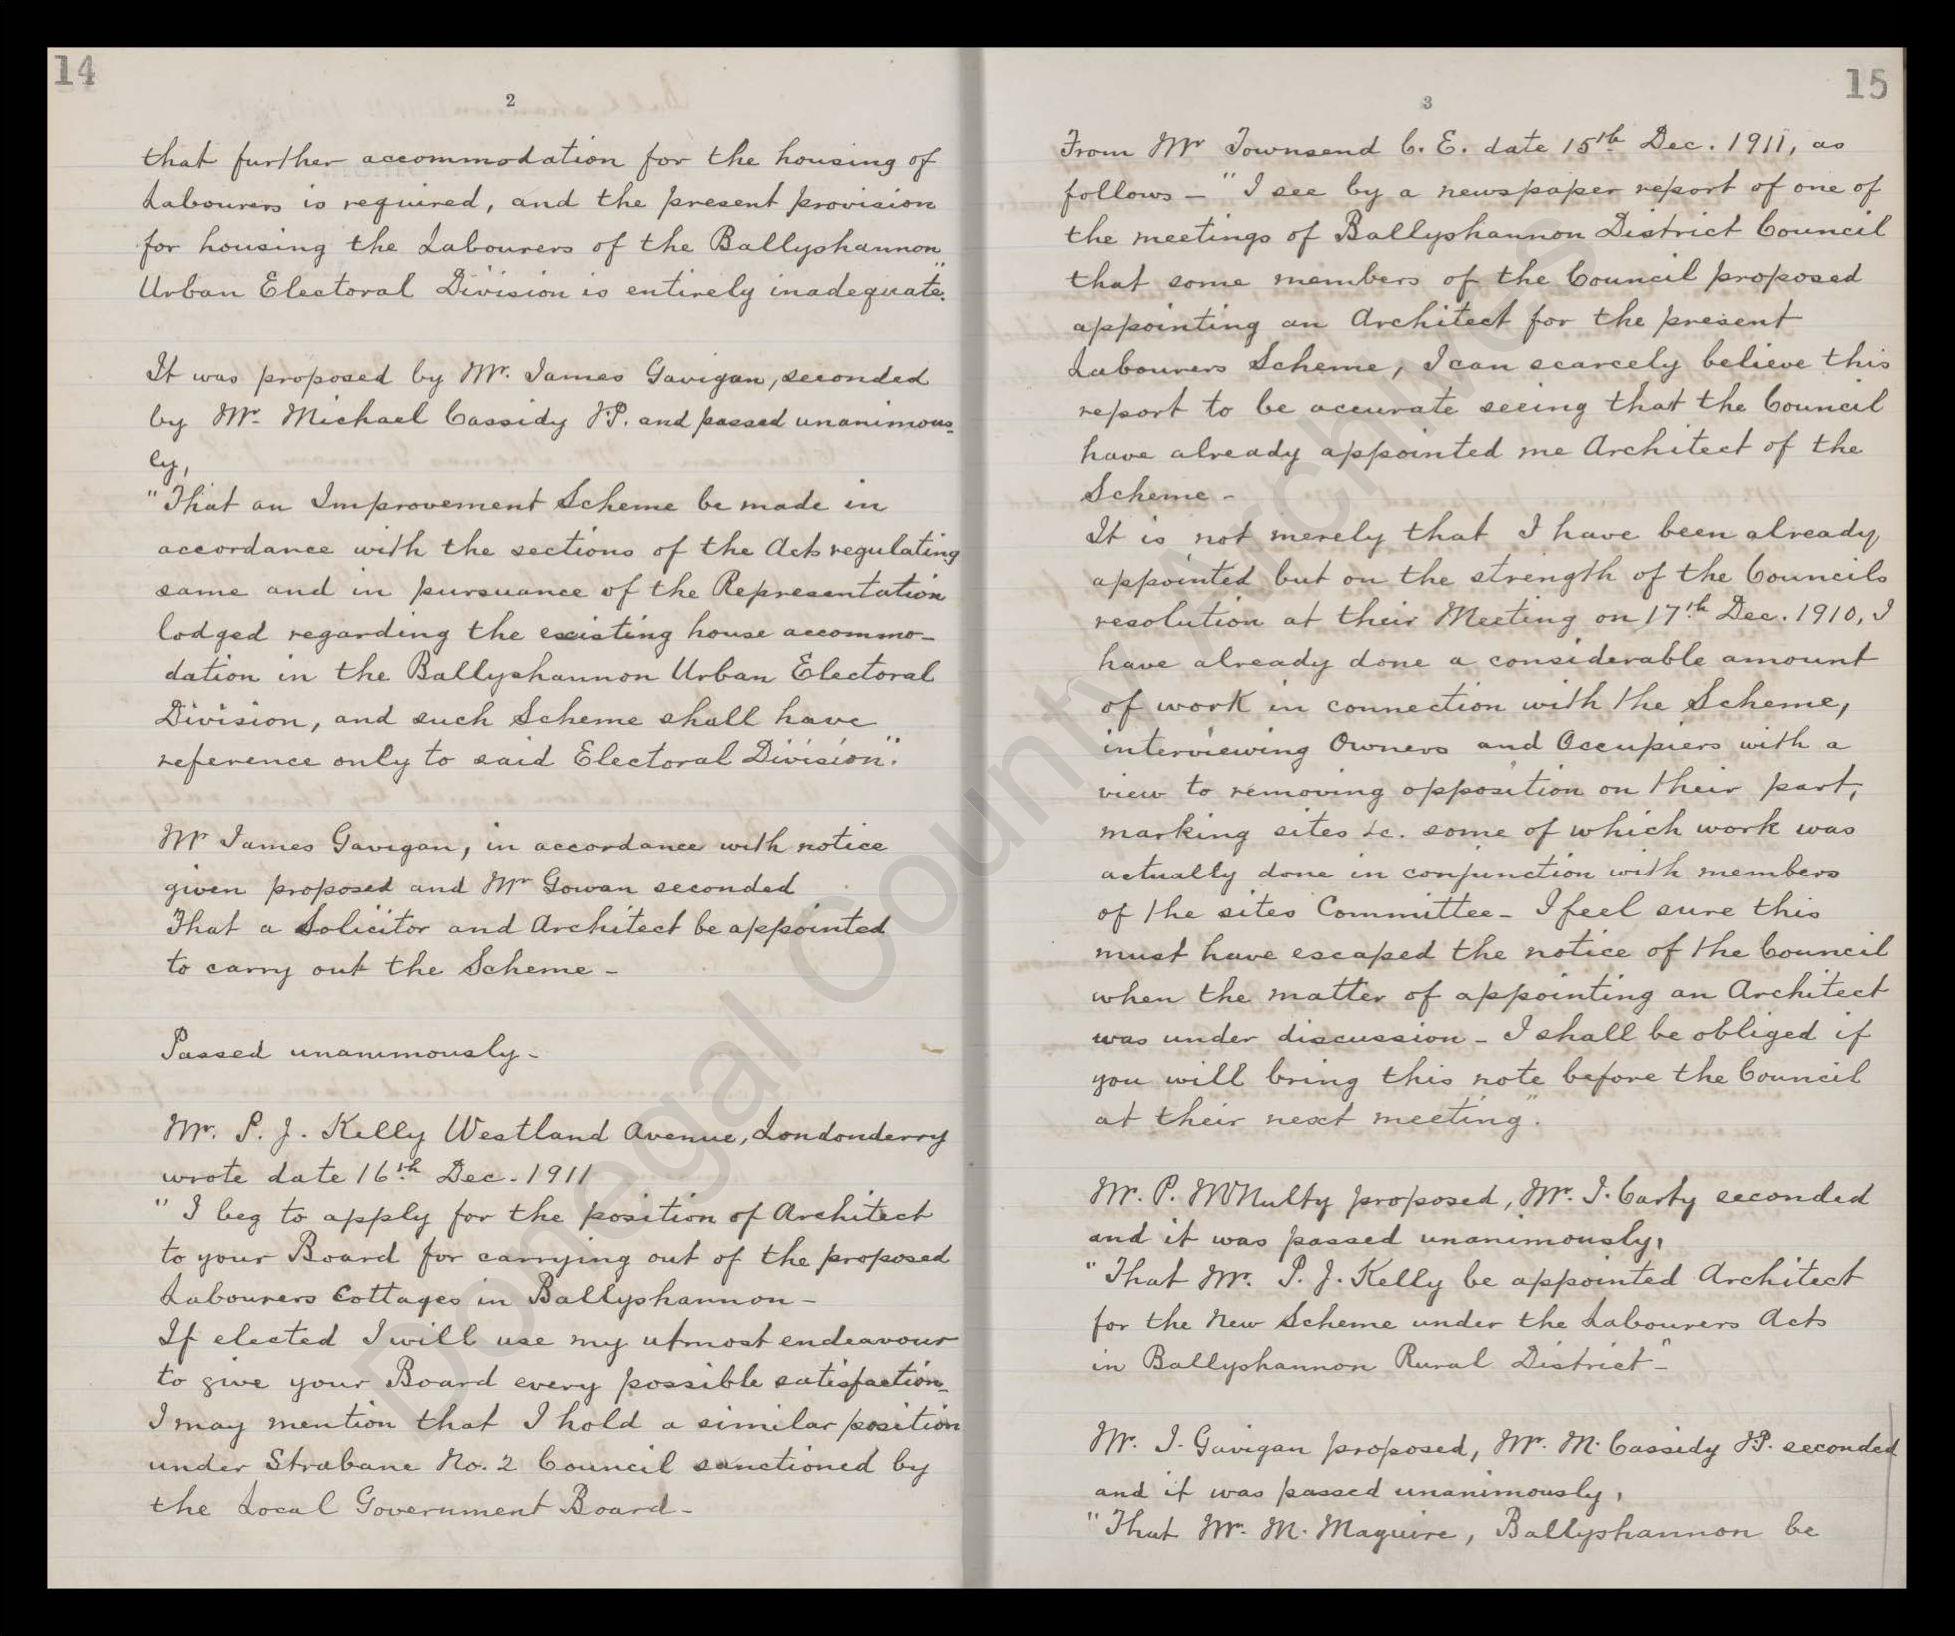 14
2
that further accommodation for the housing of
Labourers is required, and the present provision
for housing the Labourers of the Ballyshannon
Urban Electoral Division is entirely inadequate."
It was proposed by Mr. James Gavigan, seconded
by Mr. Michael Cassidy J.P. and passed unanimous-
ly,
"That an Improvement Scheme be made in
accordance with the sections of the Acts regulating
same and in pursuance of the Representation
lodged regarding the existing house accommo-
dation in the Ballyshannon Urban Electoral
Division, and such Scheme shall have
reference only to said Electoral Division".
Mr James Gavigan, in accordance with notice
given proposed and Mr Gowan seconded
That a Solicitor and Architect be appointed
to carry out the Scheme -
Passed unanimously -
Mr. P. J. Kelly Westland Avenue, Londonderry
wrote date 16th Dec. 1911
" I beg to apply for the position of Architect
to your Board for carrying out of the proposed
Labourers Cottages in Ballyshannon -
If elected I will use my utmost endeavour
to give your Board every possible satisfaction-
I may mention that I hold a similar position
under Strabane No. 2 Council sanctioned by
the Local Government Board -
15
3
From Mr Townsend C. E. date 15th Dec. 1911, as
follows - " I see by a newspaper report of one of
the meetings of Ballyshannon District Council
that some members of the Council proposed
appointing an Architect for the present
Labourers Scheme, I can scarcely believe this
report to be accurate seeing that the Council
have already appointed me Architect of the
Scheme -
It is not merely that I have been already
appointed but on the strength of the Councils
resolution at their Meeting on 17th Dec. 1910, I
have already done a considerable amount
of work in connection with the Scheme,
interviewing Owners and Occupiers with a
view to removing opposition on their part,
marking sites &c. some of which work was
actually done in conjunction with members
of the sites Committee - I feel sure this
must have escaped the notice of the Council
when the matter of appointing an Architect
was under discussion - I shall be obliged if
you will bring this note before the Council
at their next meeting".
Mr. P. McNulty proposed, Mr. J. Carty seconded
and it was passed unanimously,
"That Mr. P. J. Kelly be appointed Architect
for the New Scheme under the Labourers Acts
in Ballyshannon Rural District" -
Mr. J. Gavigan proposed, Mr. M. Cassidy J.P. seconded
and it was passed unanimously,
"That Mr. M. Maguire, Ballyshannon be
Donegal County Archives